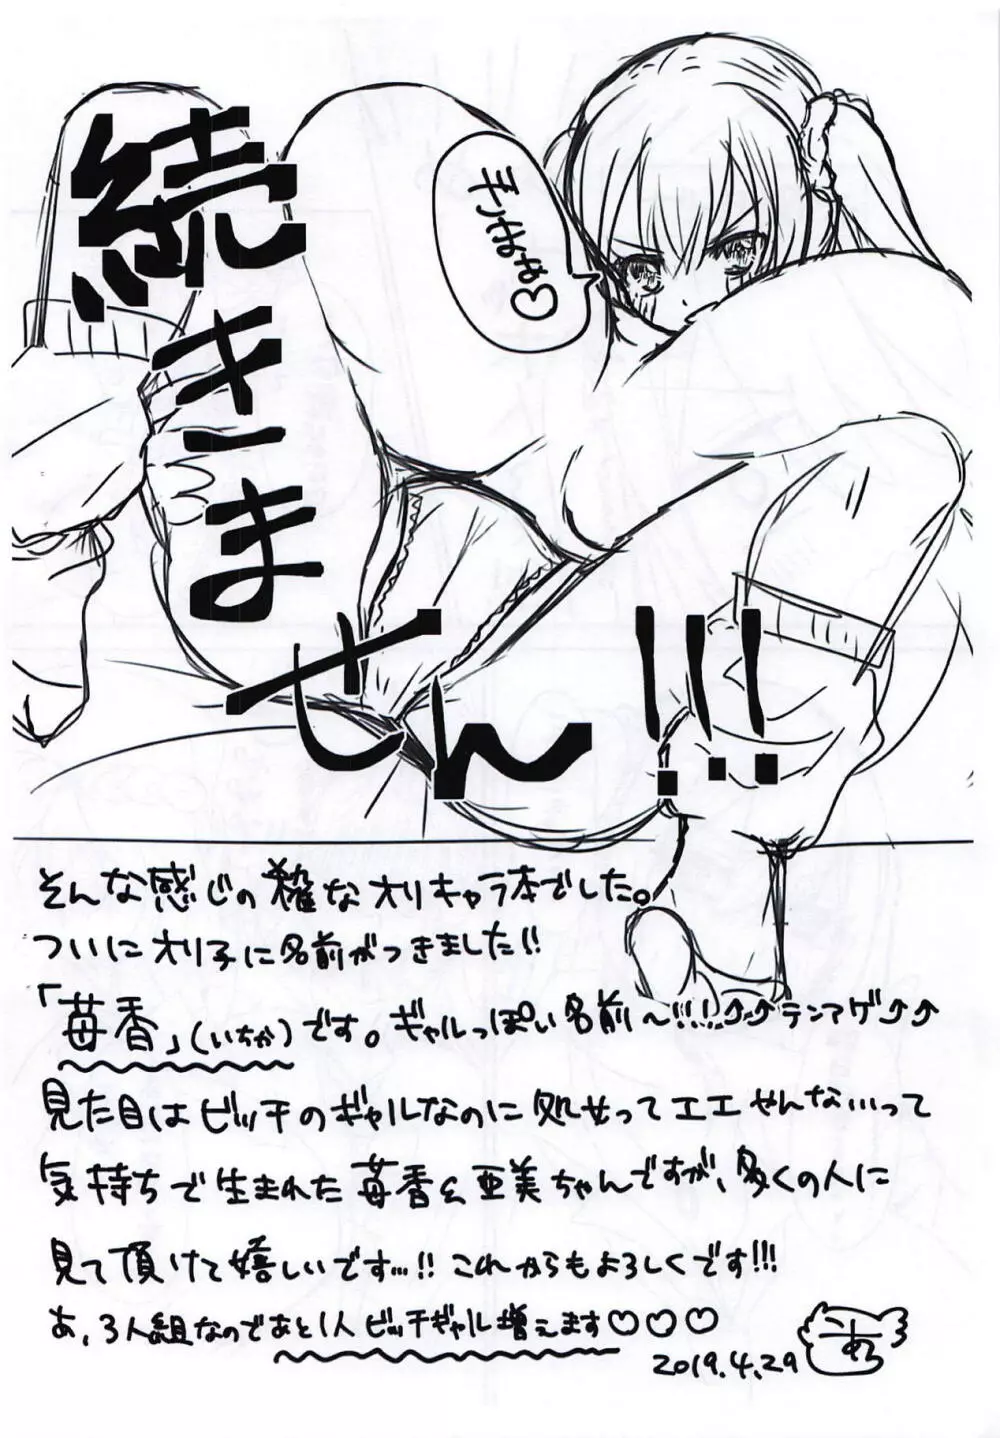 続きま
せん!!!
そんな感じの雑なオリキャラ本でした。
ついにオリ子に名前がつきました!!
「苺香」(いちか)です。ギャルっぽい名前〜!!!⤴⤴テンアゲ⤴⤴
見た目はビッチのギャルなのに処女ってエエやんな…って
気持ちで生まれた苺香&亜美ちゃんですが、多くの人に
見て頂けて嬉しいです…!! これからもよろしくです!!!
あ、3人組なのであと1人ビッチギャル増えます♡♡♡
2019.4.29